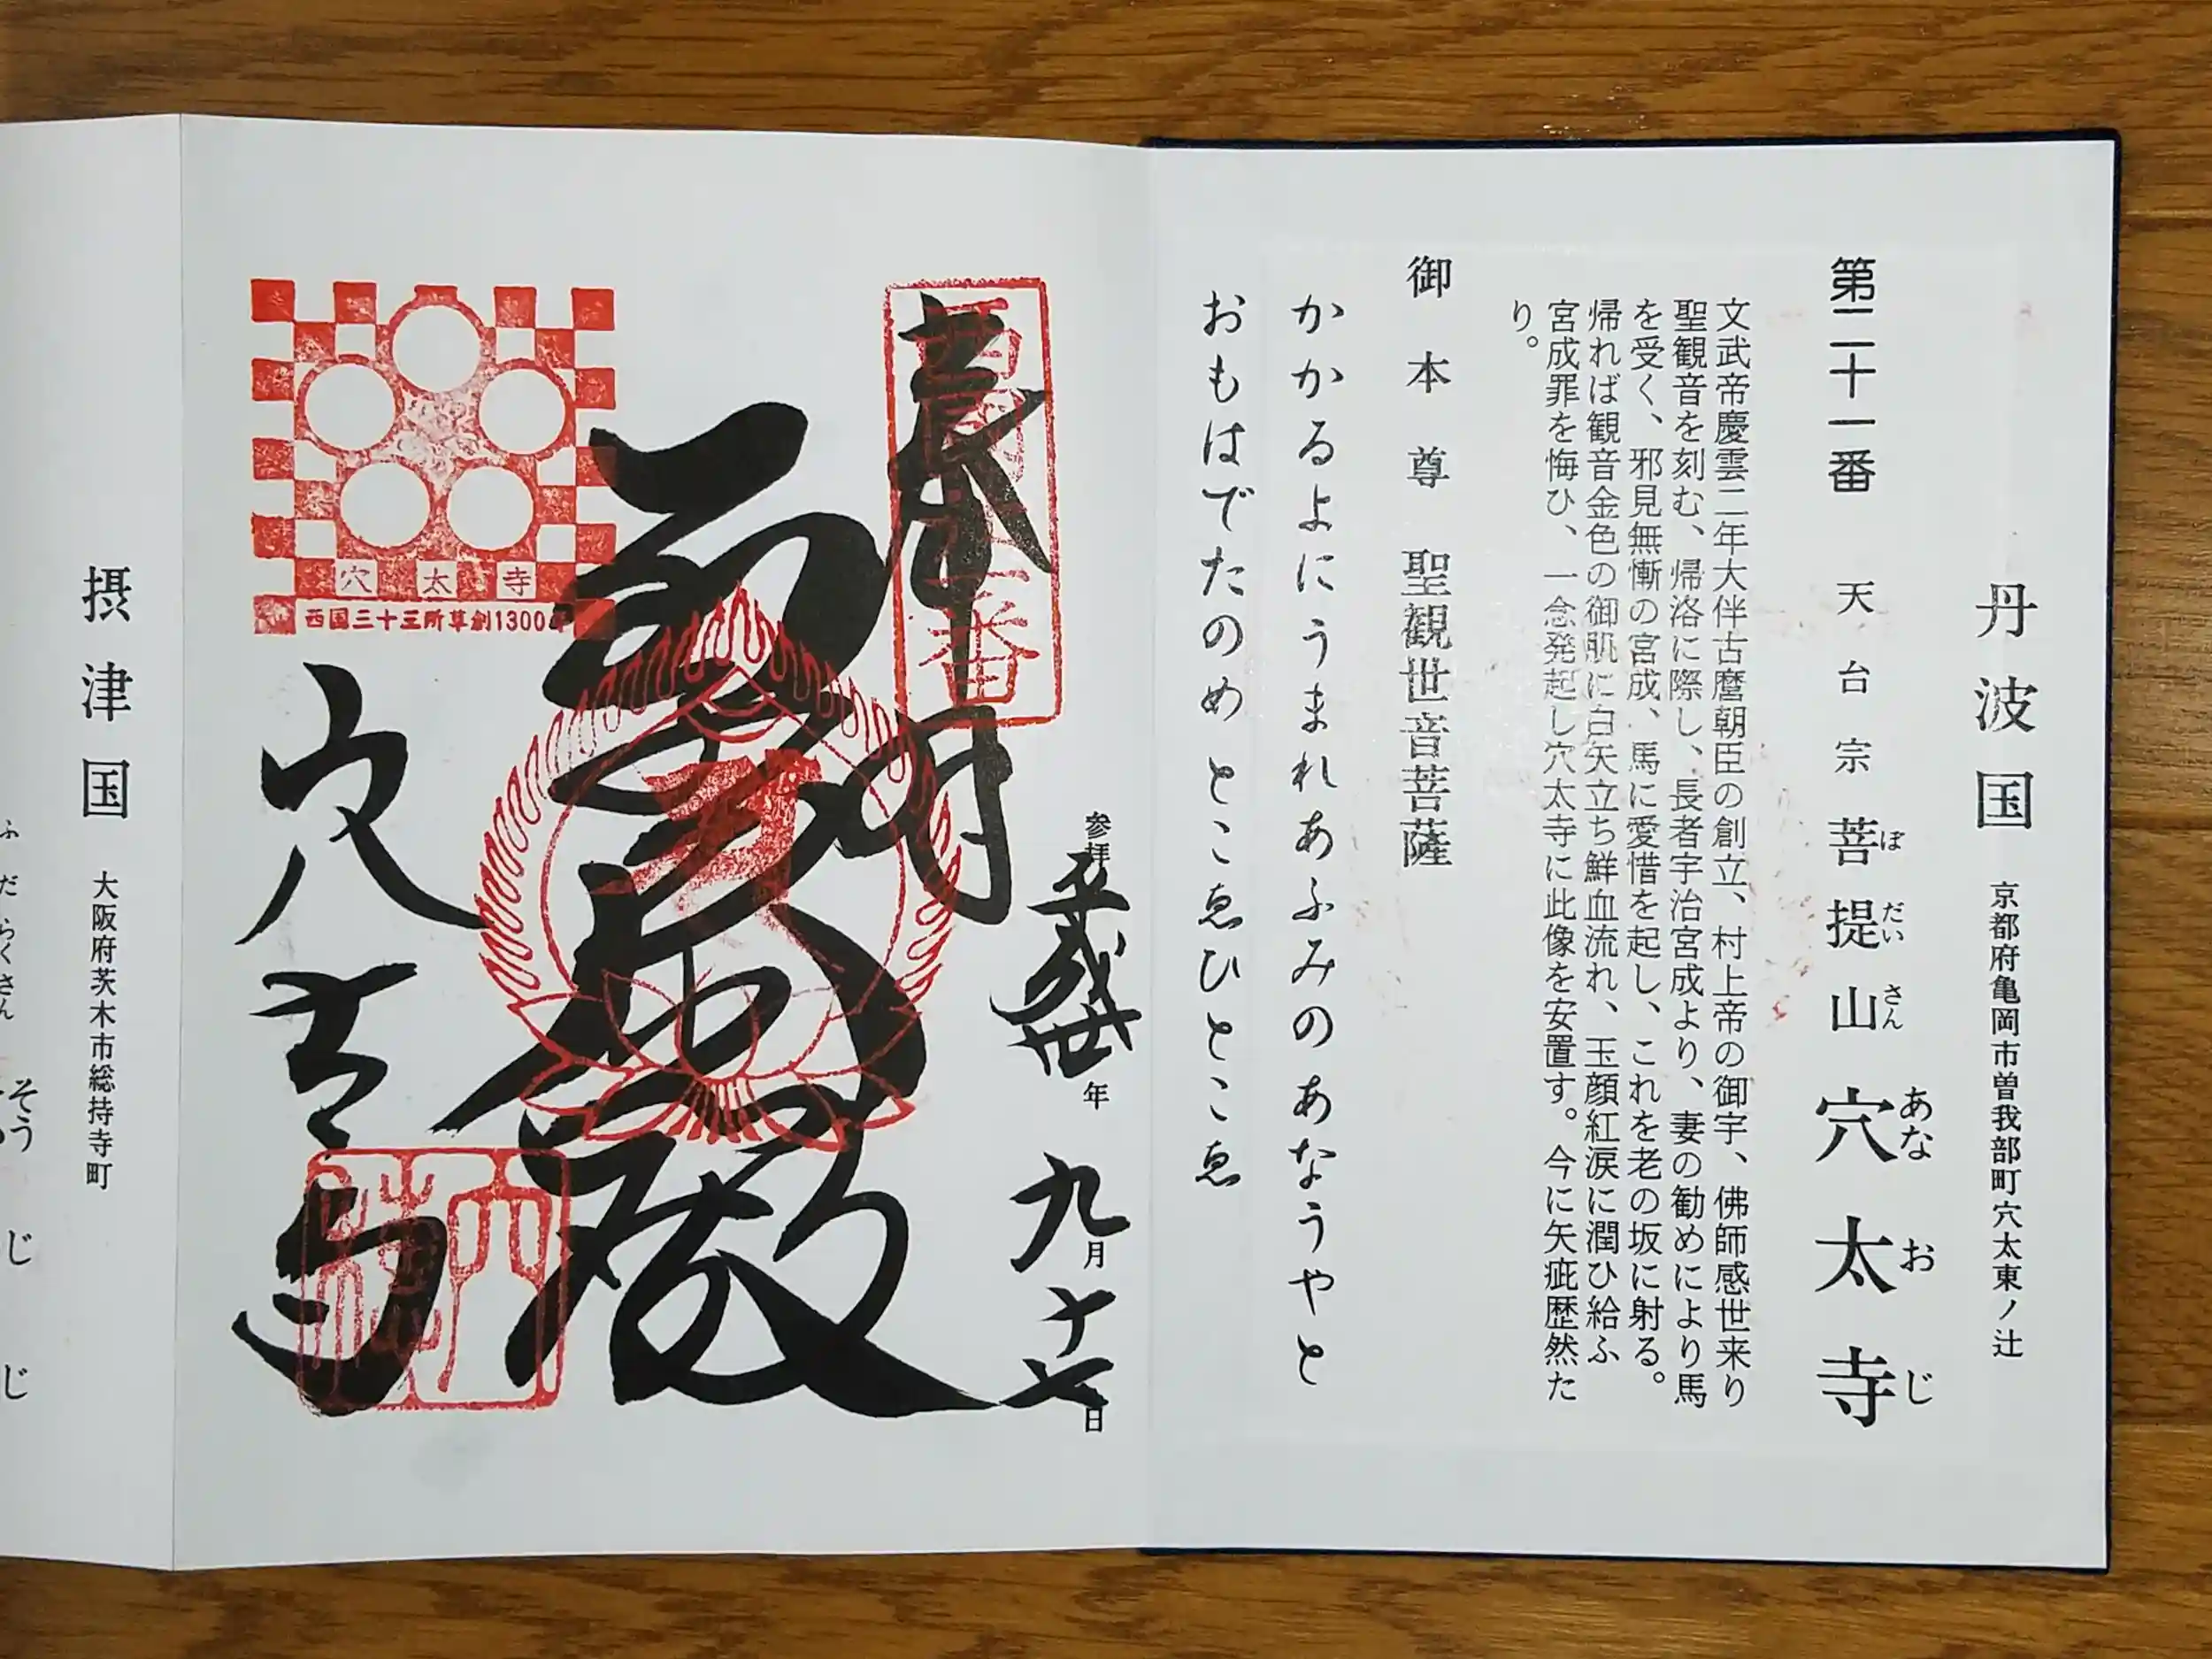 丹波国 京都府亀岡市曽我部町穴太東ノ辻
第二十一番 天台宗 菩提山 穴太寺
ぼだいさん あなおじ
文武帝慶雲二年大伴古麿朝臣の創立、村上帝の御宇、佛師感世来り
聖観音を刻む、帰洛に際し、長者宇治宮成より、妻の勧めにより馬
を受く、邪見無慚の宮成、馬に愛惜を起し、これを老の坂に射る。
帰れば観音金色の御肌に白矢立ち鮮血流れ、玉顔紅涙に潤ひ給ふ
宮成罪を悔ひ、一念発起し穴太寺に此像を安置す。今に矢疵歴然た
り。
御本尊 聖観世音菩薩
かかるよにうまれあふみのあなうやと
おもはでたのめとこゑひとこゑ
参拝 平成卅年九月十七日
奉拝
西国廿一番
穴太寺
西国三十三所草創1300年
穴太寺
摂津国 大阪府茨木市総持寺町
ふだらくさん そうじじ